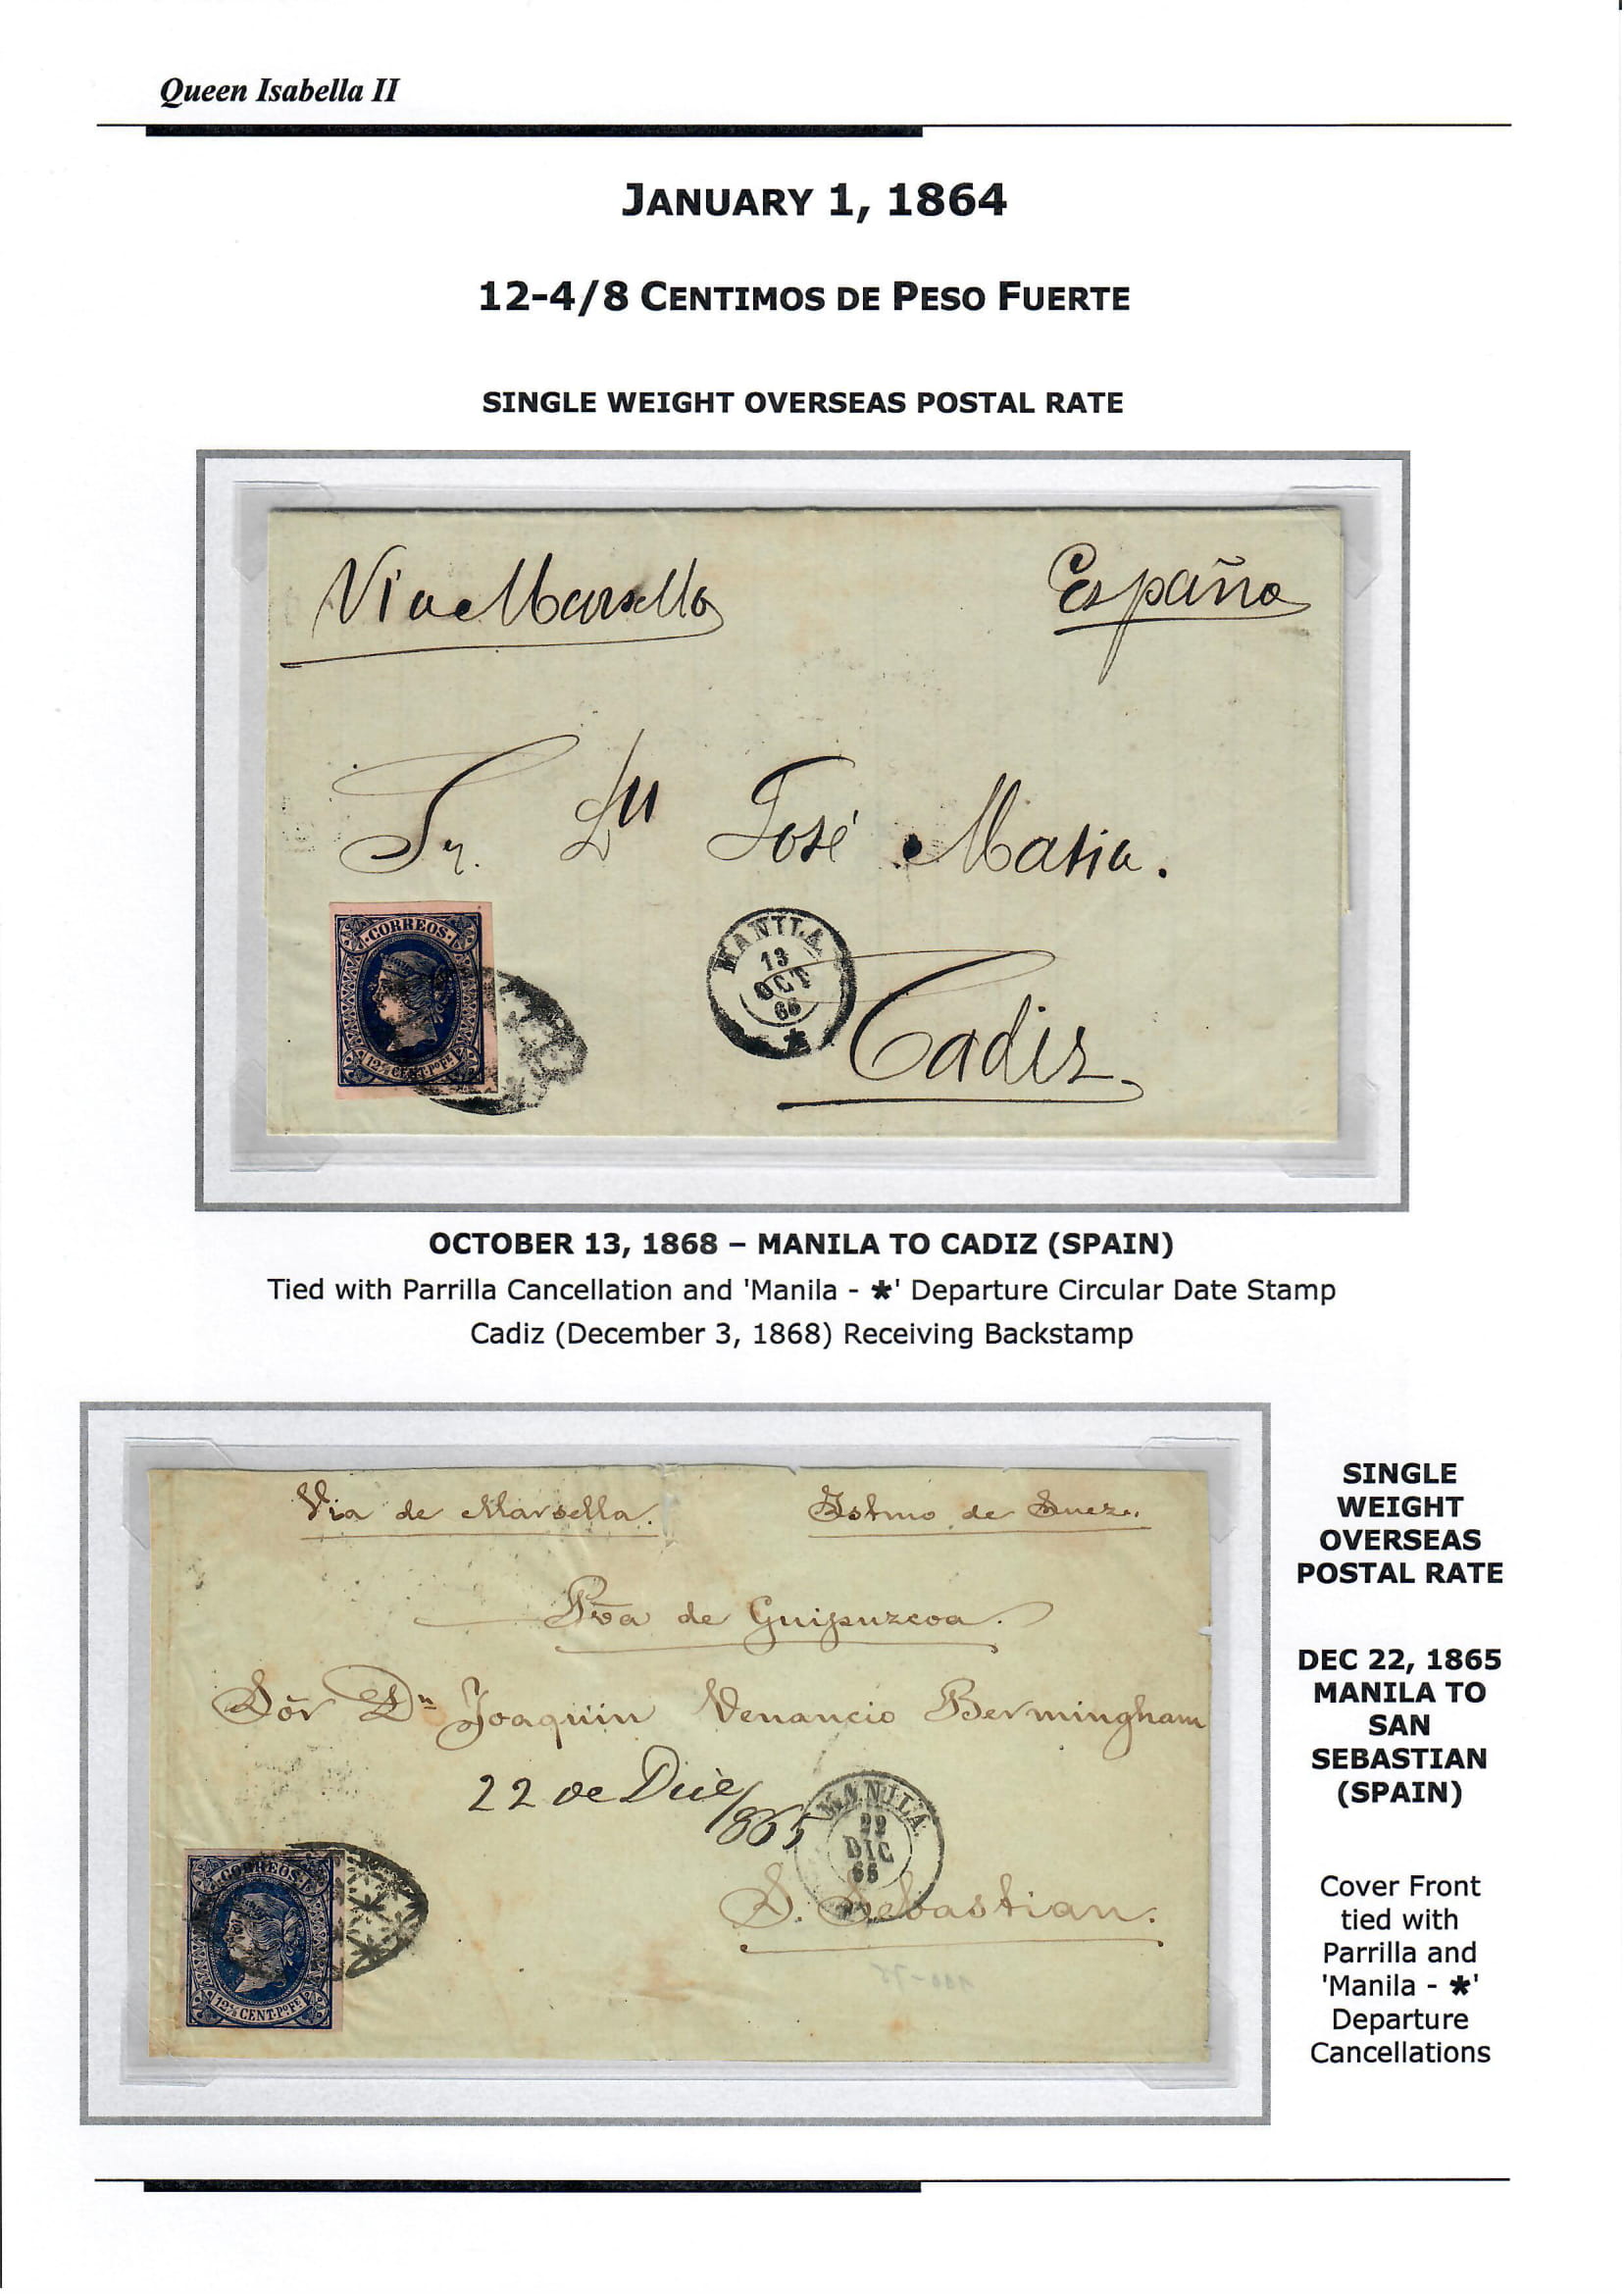 Queen Isabella II
JANUARY 1, 1864
12-4/8 CENTIMOS DE PESO FUERTE
SINGLE WEIGHT OVERSEAS POSTAL RATE
Via Marsella
España
Sr. José Matia.
CORREOS
MANILA
13
OCT
Cadiz
OCTOBER 13, 1868 – MANILA TO CADIZ (SPAIN)
Tied with Parrilla Cancellation and 'Manila - *' Departure Circular Date Stamp
Cadiz (December 3, 1868) Receiving Backstamp
Via de Marsella.
Istmo de Suez.
Pva de Guipuzcoa.
Sōr Dn Joaquin Venancio Bermingham
22 de Dice/865
MANILA
22
DIC
S. Sebastian.
CORREOS
12 4/8 CENT. Po Fe
SINGLE
WEIGHT
OVERSEAS
POSTAL RATE
DEC 22, 1865
MANILA TO
SAN
SEBASTIAN
(SPAIN)
Cover Front
tied with
Parrilla and
'Manila - *'
Departure
Cancellations